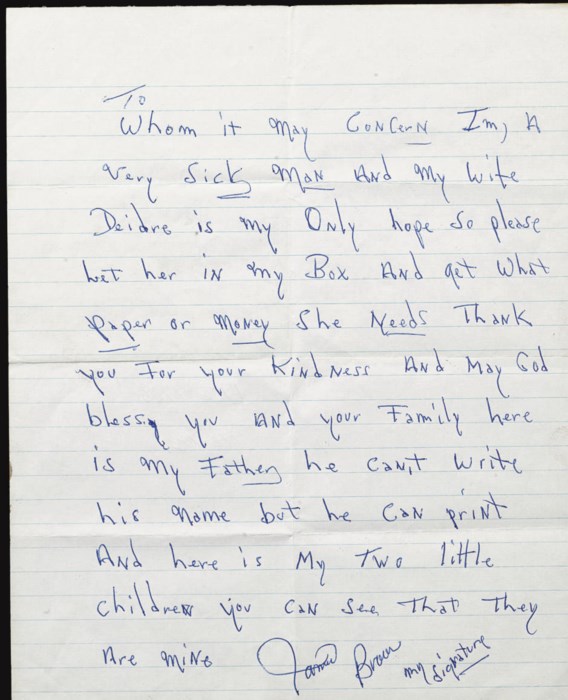 To
Whom it may Concern Im, A
Very Sick Man And My Wife
Deidre is my Only hope so please
Let her in my Box And get What
paper or Money She Needs Thank
you For your Kindness And May God
bless you And your Family here
is my Father he can,t write
his name but he Can print
And here is My Two little
children you Can See That They
Are mine James Brown my signature